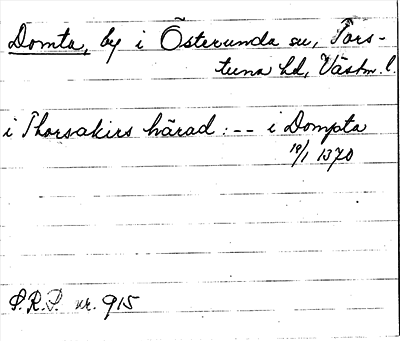 Domta, by i Österunda sn, Tors-
tuna hd, Västm. l.
i Thorsakirs härad : -- i Dompta
19/1 1370
S.R.P. nr. 915